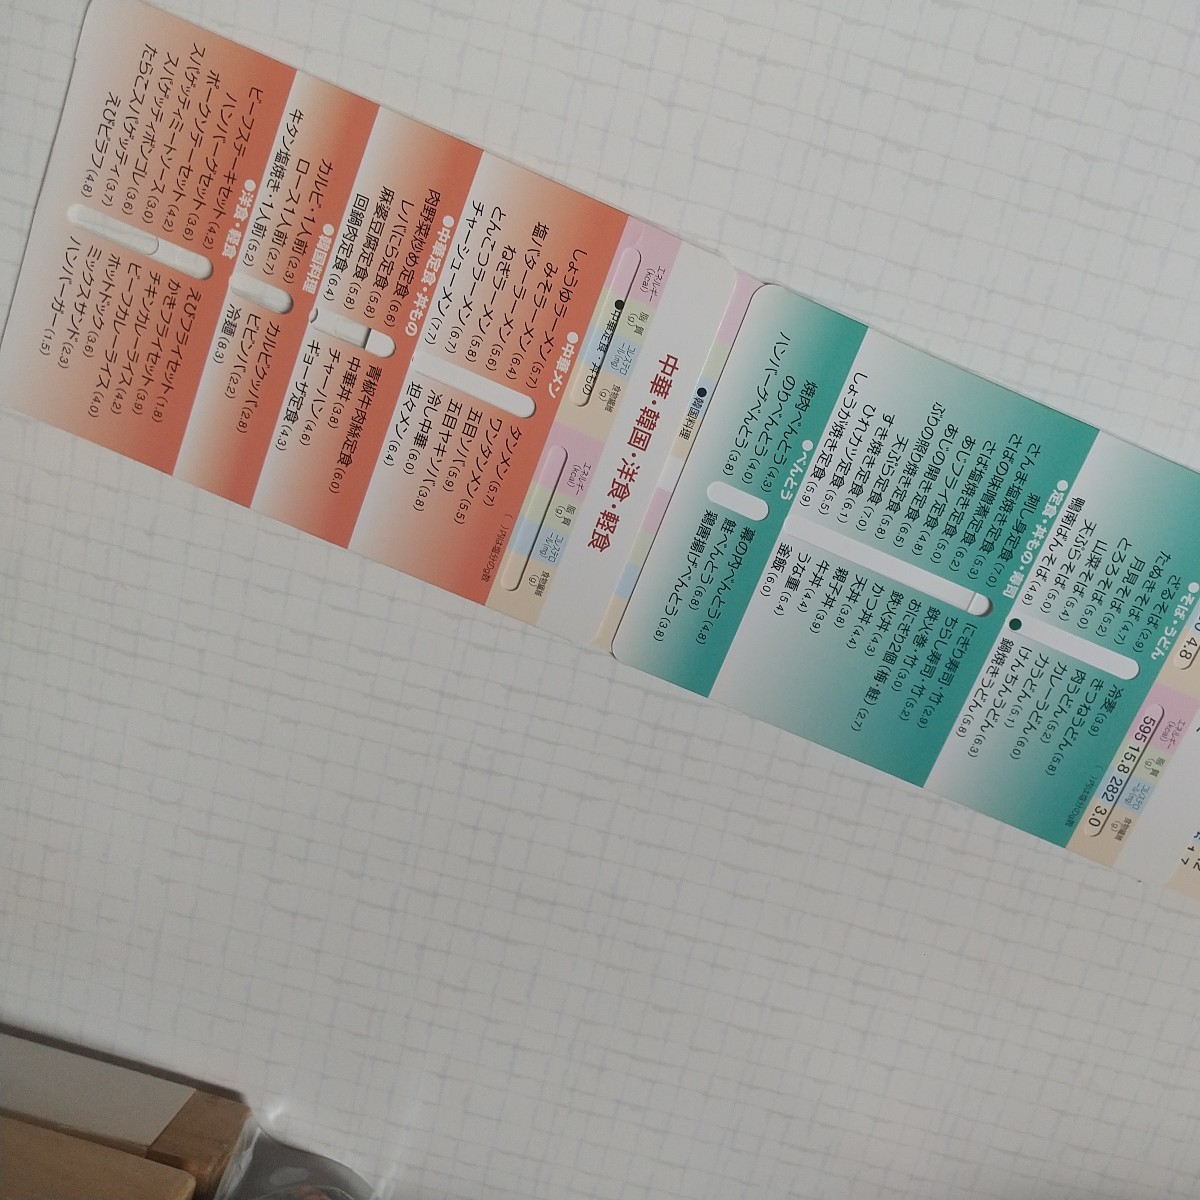 中華・韓国・洋食・軽食
●韓国料理
●中華定食・丼もの
エネルギー(kcal)
脂質(g)
コレステロール(mg)
食物繊維(g)
エネルギー(kcal)
脂質(g)
コレステロール(mg)
食物繊維(g)
( )内は塩分のg数
●中華メン
しょうゆラーメン(5.7)
みそラーメン(6.4)
塩バターラーメン(5.6)
ねぎラーメン(5.8)
とんこつラーメン(6.7)
チャーシューメン(7.7)
タンメン(5.7)
ワンタンメン(5.5)
五目ソバ(5.9)
五目ヤキソバ(3.8)
冷し中華(6.0)
担々メン(6.4)
●中華定食・丼もの
肉野菜炒め定食(6.6)
レバにら定食(5.8)
麻婆豆腐定食(5.8)
回鍋肉定食(6.4)
青椒牛肉絲定食(6.0)
中華丼(3.8)
チャーハン(4.6)
ギョーザ定食(4.3)
●韓国料理
カルビ・1人前(2.3)
ロース1人前(2.7)
牛タン塩焼き・1人前(5.2)
カルビクッパ(2.8)
ビビンバ(2.2)
冷麺(8.3)
●洋食・軽食
ビーフステーキセット(4.2)
ハンバーグセット(3.6)
ポークソテーセット(4.2)
スパゲッティミートソース(3.0)
スパゲッティボンゴレ(3.6)
たらこスパゲッティ(3.7)
えびピラフ(4.8)
えびフライセット(1.8)
かきフライセット(3.9)
チキンカレーライス(4.2)
ビーフカレーライス(4.0)
ホットドック(3.6)
ミックスサンド(2.3)
ハンバーガー(1.5)
4.8
エネルギー(kcal)
脂質(g)
コレステロール(mg)
食物繊維(g)
595 15.8 282 3.0
( )内は塩分のg数
●そば・うどん
ざるそば(2.9)
たぬきそば(4.7)
月見そば(5.2)
とろろそば(5.4)
山菜そば(5.0)
天ぷらそば(5.0)
鴨南ばんそば(4.8)
冷麦(3.9)
きつねうどん(5.8)
肉うどん(5.2)
カレーうどん(5.8)
力うどん(6.0)
けんちんうどん(6.3)
鍋焼きうどん(5.8)
●定食・丼もの・寿司
刺し身定食(7.0)
さんま塩焼き定食(5.3)
さばの味噌煮定食(6.2)
さば塩焼き定食(5.0)
あじフライ定食(4.8)
あじの開き定食(6.5)
ぶりの照り焼き定食(5.8)
天ぷら定食(5.8)
すき焼き定食(7.0)
ひれカツ定食(6.1)
しょうが焼き定食(5.5)
にぎり寿司・竹(2.9)
ちらし寿司・竹(5.2)
鉄火巻・竹(3.0)
おにぎり2個(梅・鮭)(2.7)
鉄火丼(4.3)
かつ丼(4.4)
天丼(3.8)
親子丼(3.9)
牛丼(4.4)
うな重(5.4)
釜飯(6.0)
●べんとう
焼肉べんとう(4.3)
のりべんとう(4.0)
ハンバーグべんとう(3.8)
幕の内べんとう(4.8)
鮭べんとう(6.8)
鶏唐揚げべんとう(3.8)